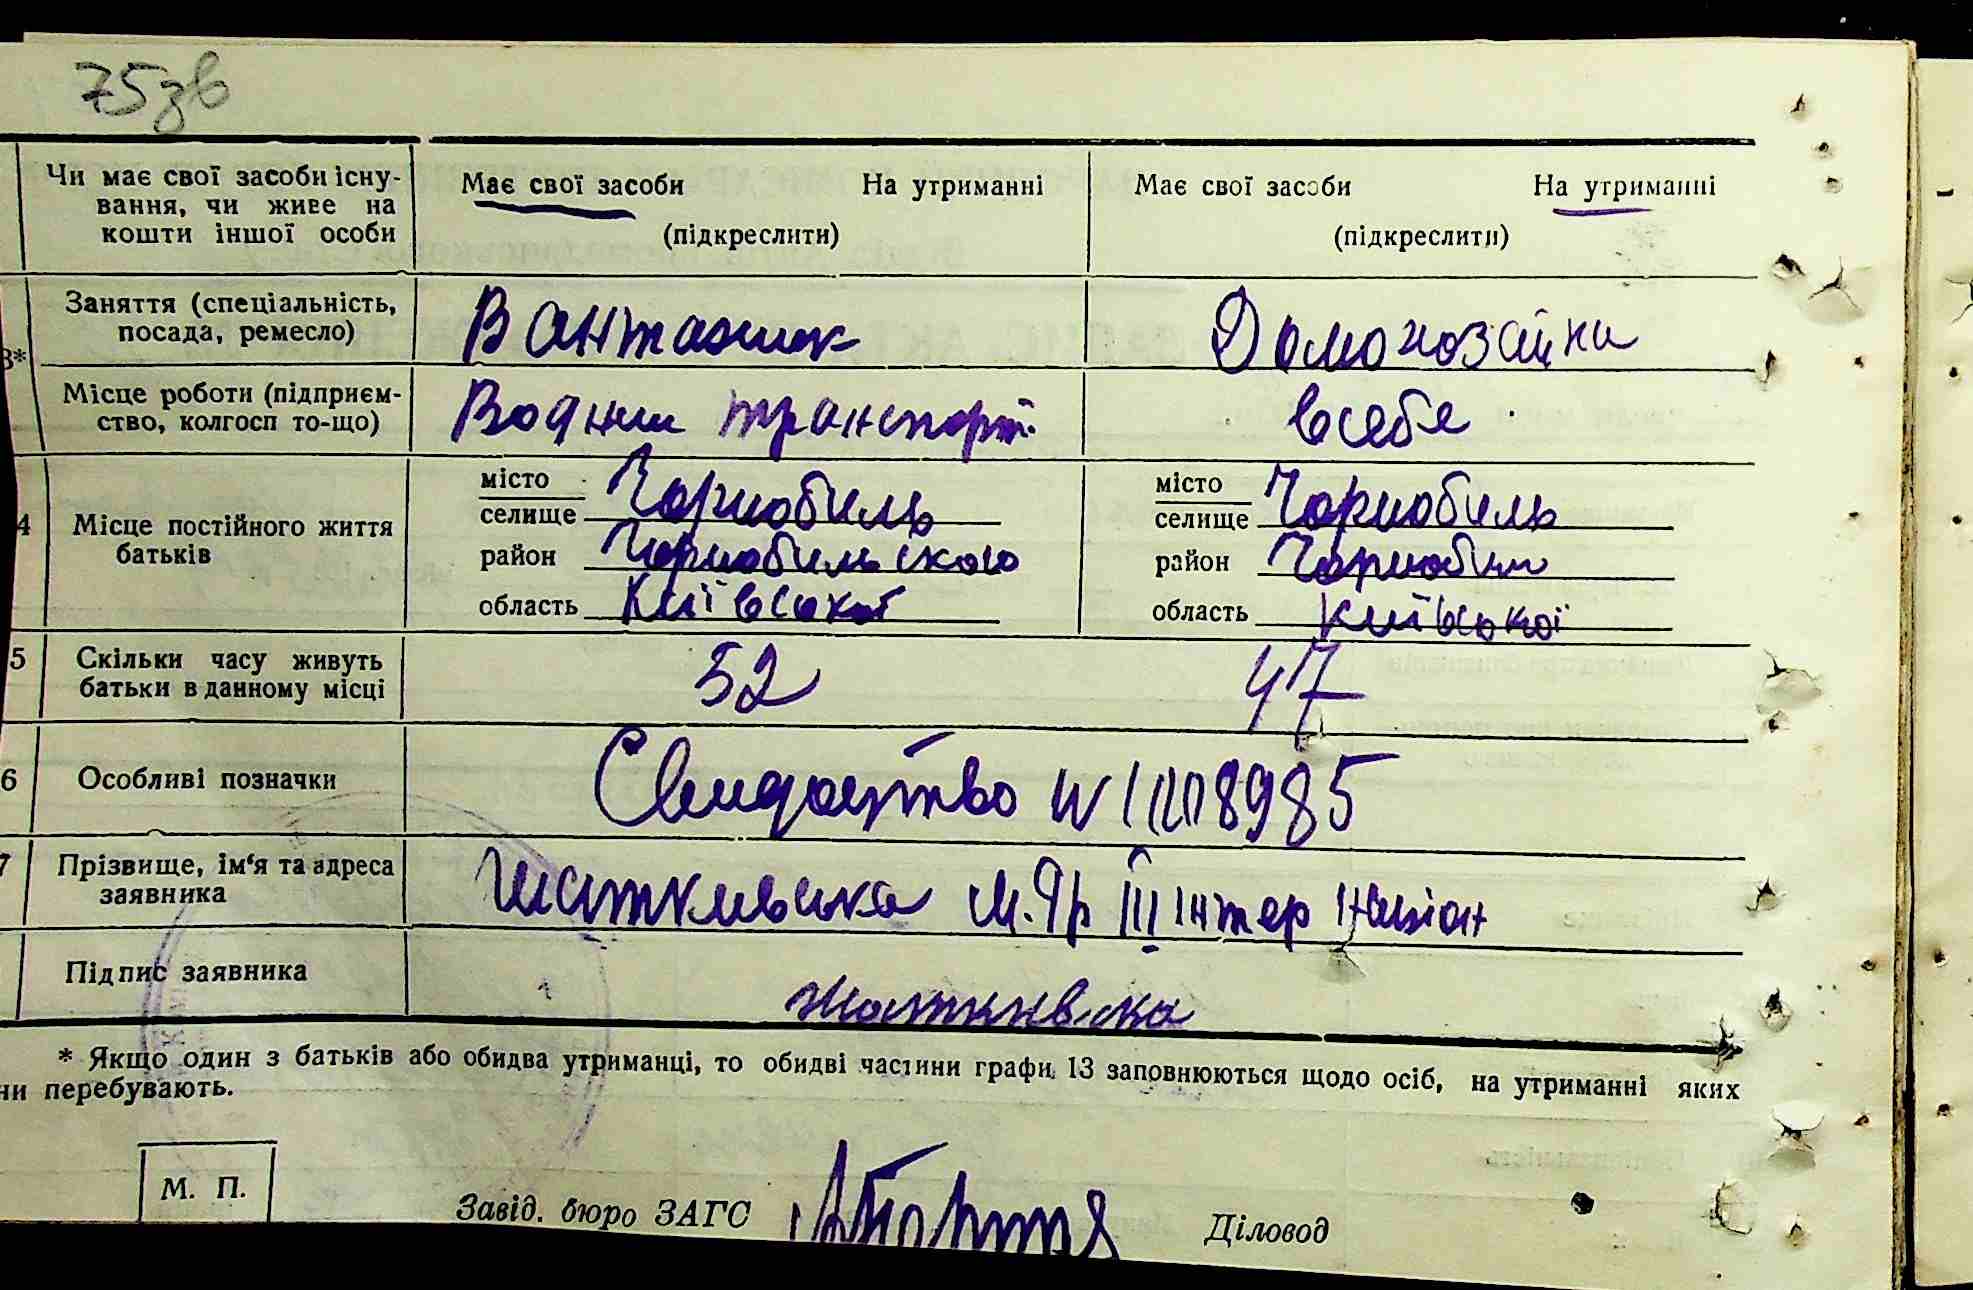 75зв
Чи має свої засоби існу-
вання, чи живе на
кошти іншої особи
Має свої засоби На утриманні
(підкреслити)
Має свої засоби На утриманні
(підкреслити)
3*
Заняття (спеціальність,
посада, ремесло)
Вантажик
Домохозайка
Місце роботи (підприєм-
ство, колгосп то-що)
Водний транспорт.
в себе
4
Місце постійного життя
батьків
місто
селище Чорнобиль
район Чорнобильского
область Київської
місто
селище Чорнобиль
район Чорнобил
область Київської
5
Скільки часу живуть
батьки в данному місці
52
47
6
Особливі позначки
Свидоцтво № 1108985
7
Прізвище, ім'я та адреса
заявника
м. Яр III Інтер націон
Підпис заявника
* Якщо один з батьків або обидва утриманці, то обидві частини графи 13 заповнюються щодо осіб, на утриманні яких
ни перебувають.
М. П.
Завід. бюро ЗАГС
Діловод